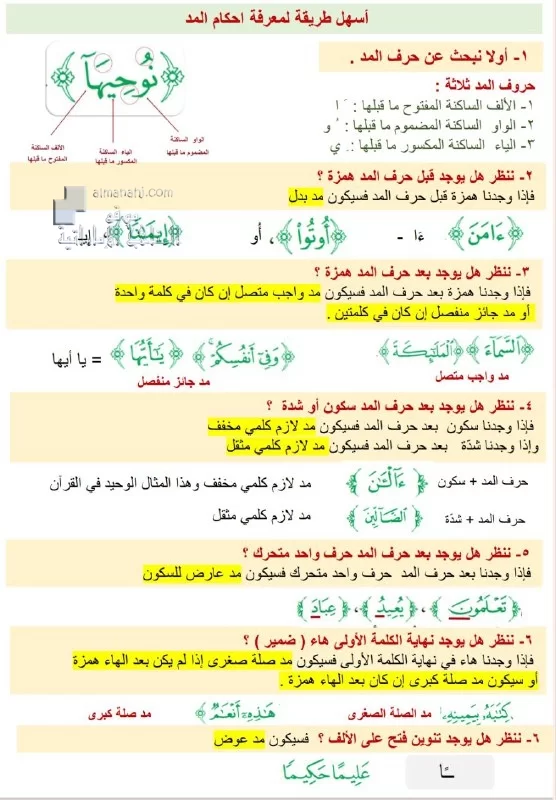 أسهل طريقة لمعرفة احكام المد
١- أولا نبحث عن حرف المد .
نُوحِيهَآ
حروف المد ثلاثة :
١- الألف الساكنة المفتوح ما قبلها : َ ا
٢- الواو الساكنة المضموم ما قبلها : ُ و
٣- الياء الساكنة المكسور ما قبلها : ِ ي
الواو الساكنة المضموم ما قبلها
الياء الساكنة المكسور ما قبلها
الألف الساكنة المفتوح ما قبلها
almanahj.com
موقع
المناهج الإماراتية
٢- ننظر هل يوجد قبل حرف المد همزة ؟
فإذا وجدنا همزة قبل حرف المد فسيكون مد بدل
﴿ءَامَنَ﴾ ءَا - ﴿أُوتُواْ﴾ ، أُو ﴿إِيمَٰنٗا﴾ ، إِيـ
٣- ننظر هل يوجد بعد حرف المد همزة ؟
فإذا وجدنا همزة بعد حرف المد فسيكون مد واجب متصل إن كان في كلمة واحدة
أو مد جائز منفصل إن كان في كلمتين .
﴿السَّمَآءَ﴾ ﴿الْمَلَٰٓئِكَةَ﴾ ﴿وَفِيٓ أَنفُسِكُمۡ﴾ ﴿يَٰٓأَيُّهَا﴾ = يا أيها
مد واجب متصل مد جائز منفصل
٤- ننظر هل يوجد بعد حرف المد سكون أو شدة ؟
فإذا وجدنا سكون بعد حرف المد فسيكون مد لازم كلمي مخفف
وإذا وجدنا شدّة بعد حرف المد فسيكون مد لازم كلمي مثقل
حرف المد + سكون ﴿ءَآلۡـَٰٔنَ﴾ مد لازم كلمي مخفف وهذا المثال الوحيد في القرآن
حرف المد + شدّة ﴿الضَّآلِّينَ﴾ مد لازم كلمي مثقل
٥- ننظر هل يوجد بعد حرف المد حرف واحد متحرك ؟
فإذا وجدنا بعد حرف المد حرف واحد متحرك فسيكون مد عارض للسكون
﴿تَعْلَمُونَ﴾، ﴿يُعِيدُ﴾، ﴿عِبَادَ﴾
٦- ننظر هل يوجد نهاية الكلمة الأولى هاء ( ضمير ) ؟
فإذا وجدنا هاء في نهاية الكلمة الأولى فسيكون مد صلة صغرى إذا لم يكن بعد الهاء همزة
أو سيكون مد صلة كبرى إن كان بعد الهاء همزة .
كِتَٰبَهُۥ بِيَمِينِهِۦ مد الصلة الصغرى هَٰذِهِۦٓ أَنْعَٰمٞ﴾ مد صلة كبرى
٦- ننظر هل يوجد تنوين فتح على الألف ؟ فسيكون مد عوض
ـًا عَلِيمًا حَكِيمًا